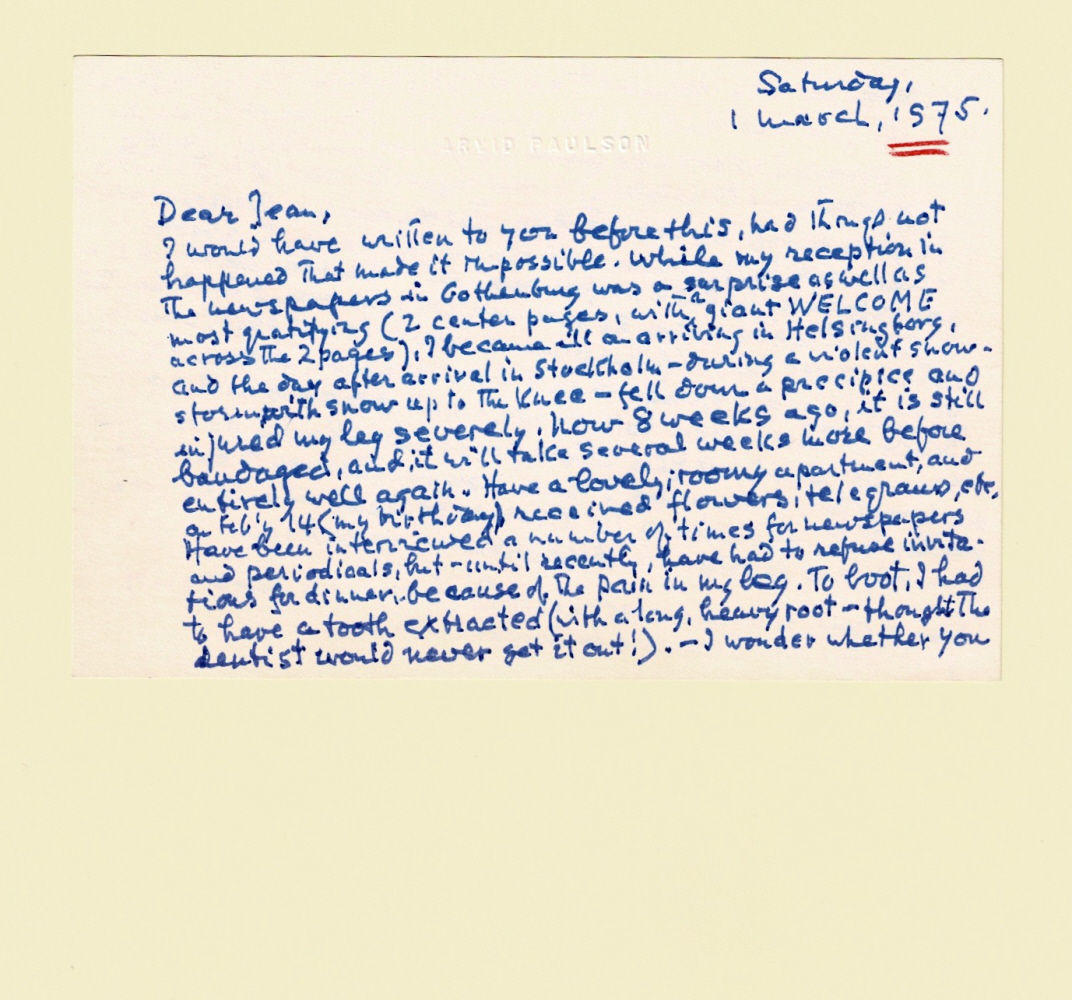 Saturday,
1 March, 1975.
ARVID PAULSON
Dear Jean,
I would have written to you before this, had things not
happened that made it impossible. While my reception in
the newspapers in Gothenburg was a surprise as well as
most gratifying (2 center pages, with a giant WELCOME
across the 2 pages), I became ill on arriving in Helsingborg,
and the day after arrival in Stockholm – during a violent snow-
storm with snow up to the knee – fell down a precipice and
injured my leg severely. Now 8 weeks ago, it is still
bandaged, and it will take several weeks more before
entirely well again. Have a lovely, roomy apartment, and
on Feb'y 14 (my birthday) received flowers, telegrams, etc.
Have been interviewed a number of times for newspapers
and periodicals, but – until recently, have had to refuse invita-
tions for dinner, because of the pain in my leg. To boot, I had
to have a tooth extracted (with a long, heavy root – thought the
dentist would never get it out!). – I wonder whether you